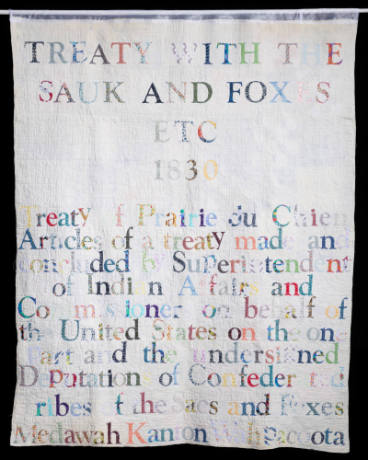 TREATY WITH THE
SAUK AND FOXES
ETC
1830
Treaty of Prairie du Chien
Articles of a treaty made and
concluded by Superintendent
of Indian Affairs and
Commissioner on behalf of
the United States on the one
Part and the undersigned
Deputation of Confederated
Tribes of the Sacs and Foxes
Medawah Kanton Wahpacoota